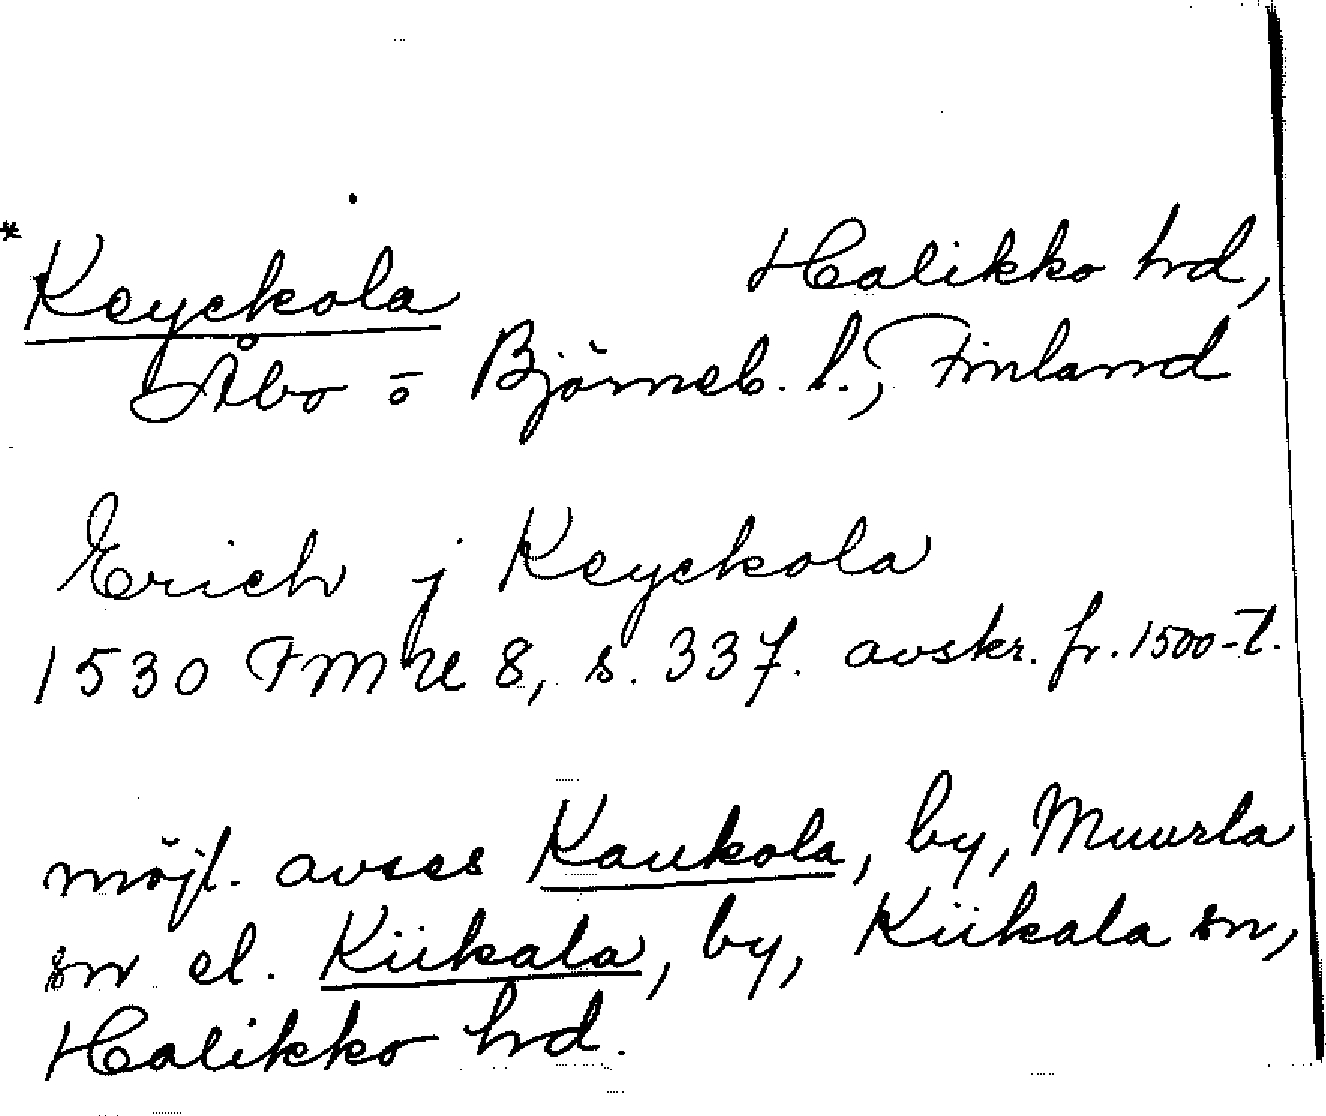 * Keyckola Halikko hrd,
Åbo o Björneb. l., Finland
Erich j Keyckola
1530 FMU 8, s. 337. avskr. fr. 1500-t.
möjl. avses Kaukola, by, Muurla
sn el. Kiikala, by, Kiikala sn,
Halikko hrd.